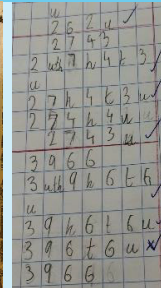 u
2 6 2 u
2 7 4 3
2 uth 7 h 4 t 3
u
2 7 h 4 t 3 u
2 7 4 h 4 u
2 7 4 3 u
3 9 6 6
3 uth 9 h 6 t 6
u
3 9 h 6 t 6 u
3 9 6 t 6 u x
3 9 6 6